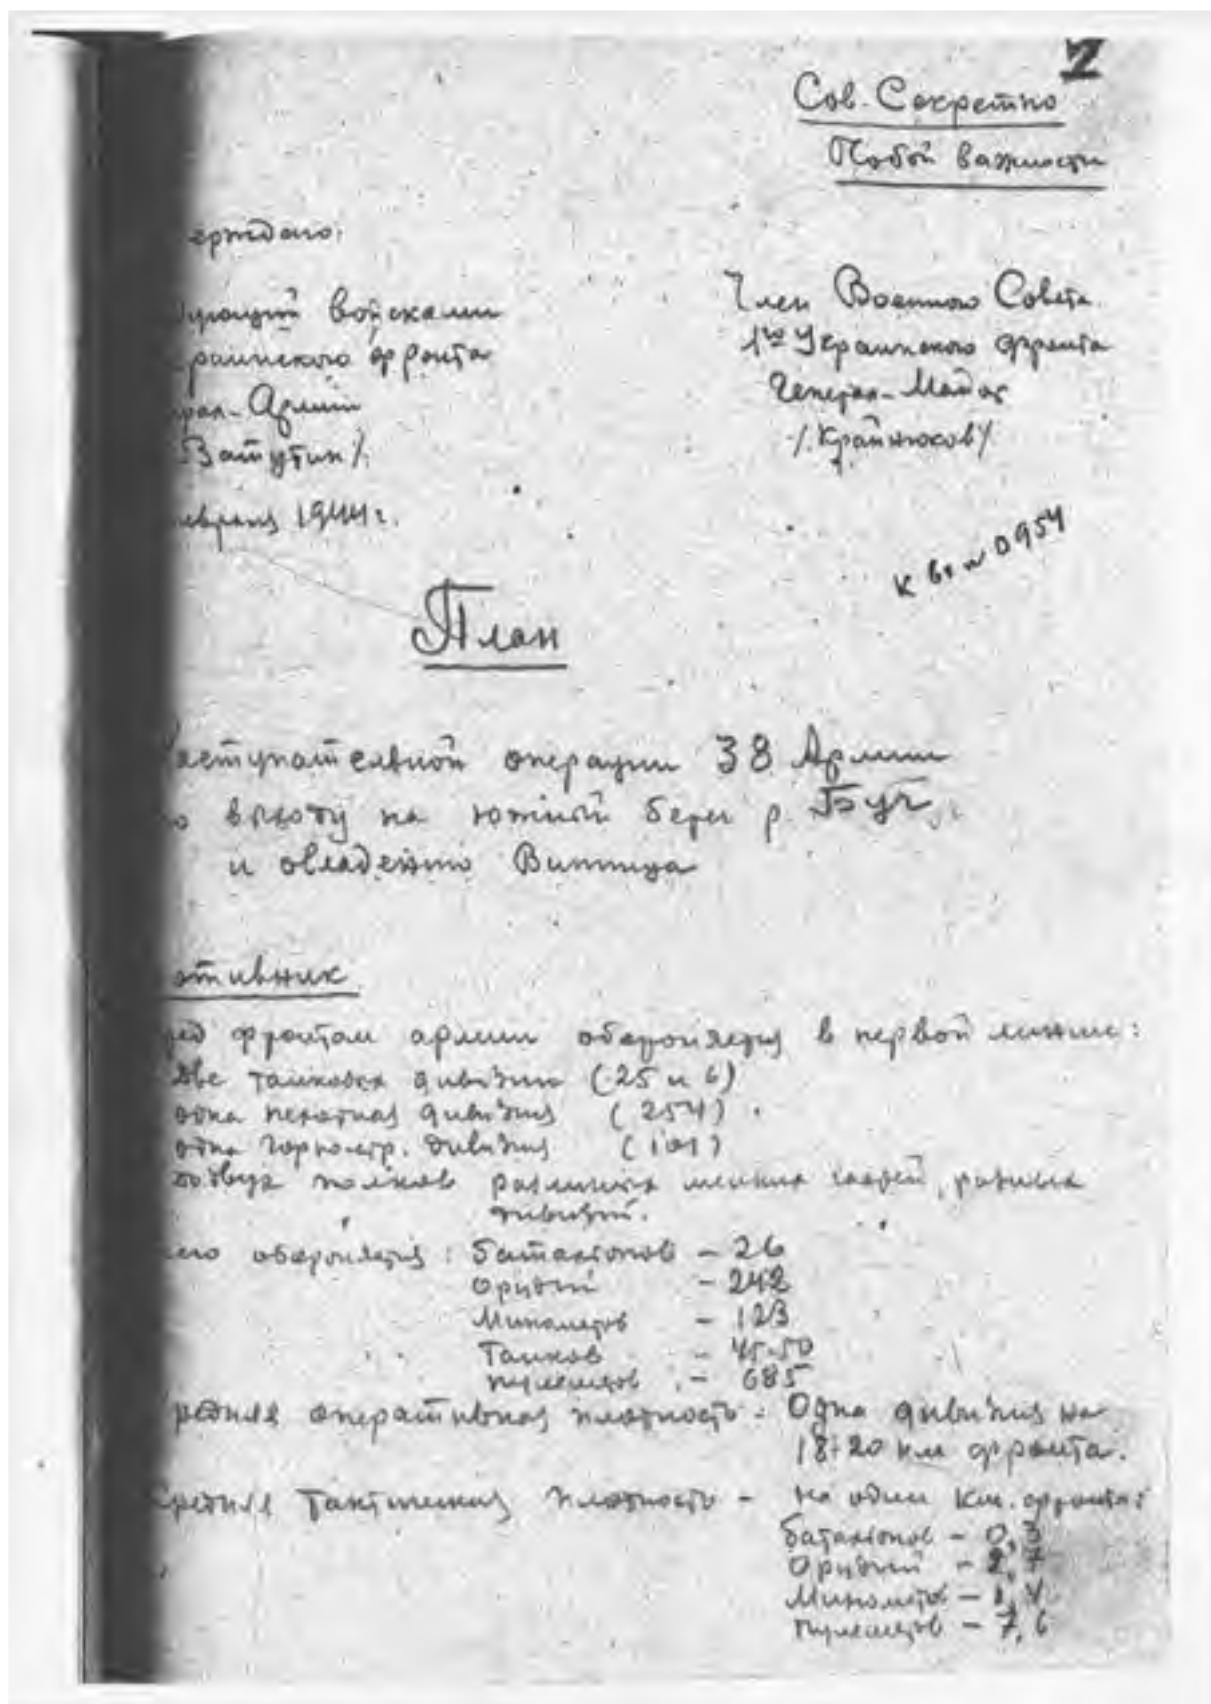 2
Сов. Секретно
Особой важности
ерждаю:
дующий войсками
раинского фронта
ерал-Армии
Ватутин/.
евраля 1944 г.
Член Военного Совета
1го Украинского фронта
Генерал-Майор
/.Крайнюков/
к вх № 0954
План
аступательной операции 38 Армии
о выходу на южный берег р. Буг,
и овладению Винница
отивник
ред фронтом армии обороняется в первой линии:
две танковых дивизии (25 и 6)
одна пехотная дивизия (254).
одна горно-стр. дивизия (101)
до двух полков различных мелких частей, разных
дивизий.
его обороняется: батальонов - 26
Орудий - 242
Минометов - 123
Танков - 45-50
пулеметов - 685
редняя оперативная плотность - Одна дивизия на
18-20 км фронта.
Средняя тактическая плотность - на один км. фронта:
батальонов - 0,3
Орудий - 2,7
Минометов - 1,4
пулеметов - 7,6